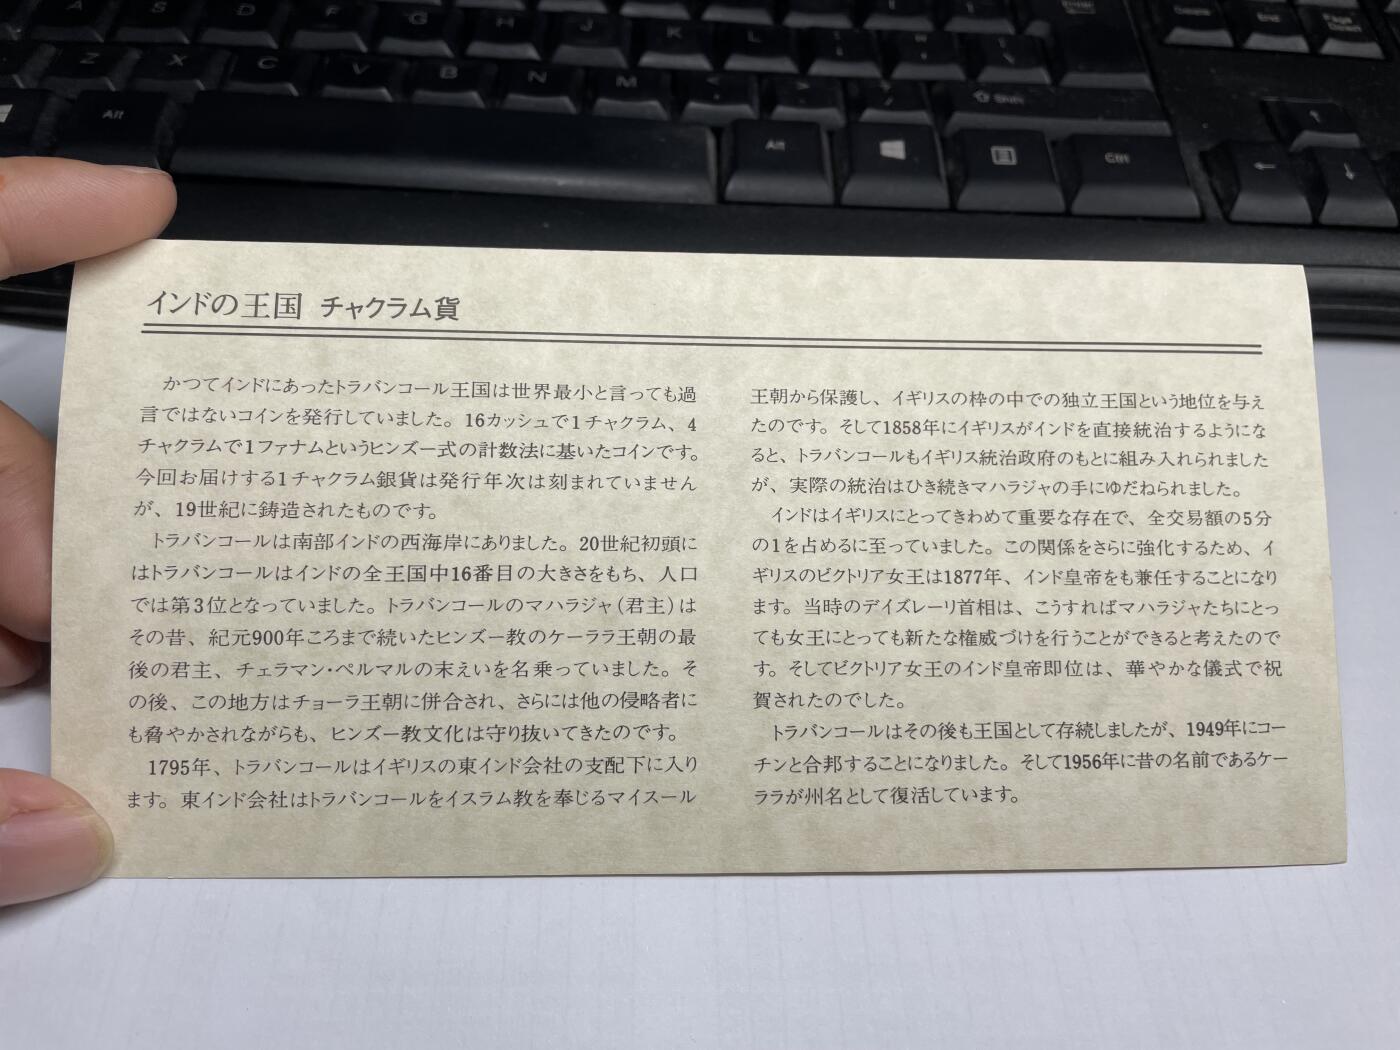 A
S
D
F
G
H
J
K
L
Z
X
C
V
B
N
M
Shift
Alt
Alt
Ctrl
End
インドの王国 チャクラム貨
かつてインドにあったトラバンコール王国は世界最小と言っても過
言ではないコインを発行していました。16カッシュで1チャクラム、4
チャクラムで1ファナムというヒンズー式の計数法に基いたコインです。
今回お届けする1チャクラム銀貨は発行年次は刻まれていません
が、19世紀に鋳造されたものです。
トラバンコールは南部インドの西海岸にありました。20世紀初頭に
はトラバンコールはインドの全王国中16番目の大きさをもち、人口
では第3位となっていました。トラバンコールのマハラジャ(君主)は
その昔、紀元900年ころまで続いたヒンズー教のケーララ王朝の最
後の君主、チェラマン・ペルマルの末えいを名乗っていました。そ
の後、この地方はチョーラ王朝に併合され、さらには他の侵略者に
も脅やかされながらも、ヒンズー教文化は守り抜いてきたのです。
1795年、トラバンコールはイギリスの東インド会社の支配下に入り
ます。東インド会社はトラバンコールをイスラム教を奉じるマイスール
王朝から保護し、イギリスの枠の中での独立王国という地位を与え
たのです。そして1858年にイギリスがインドを直接統治するようにな
ると、トラバンコールもイギリス統治政府のもとに組み入れられました
が、実際の統治はひき続きマハラジャの手にゆだねられました。
インドはイギリスにとってきわめて重要な存在で、全交易額の5分
の1を占めるに至っていました。この関係をさらに強化するため、イ
ギリスのビクトリア女王は1877年、インド皇帝をも兼任することになり
ます。当時のデイズレーリ首相は、こうすればマハラジャたちにとっ
ても女王にとっても新たな権威づけを行うことができると考えたので
す。そしてビクトリア女王のインド皇帝即位は、華やかな儀式で祝
賀されたのでした。
トラバンコールはその後も王国として存続しましたが、1949年にコー
チンと合邦することになりました。そして1956年に昔の名前であるケー
ララが州名として復活しています。